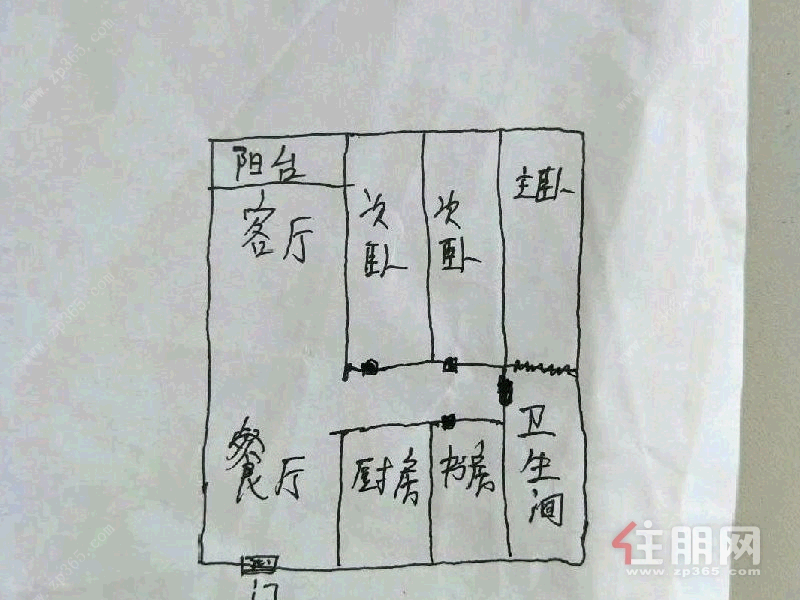 阳台
客厅
次卧
次卧
主卧
餐厅
厨房
书房
卫生间
门
住朋网
www.zp365.com